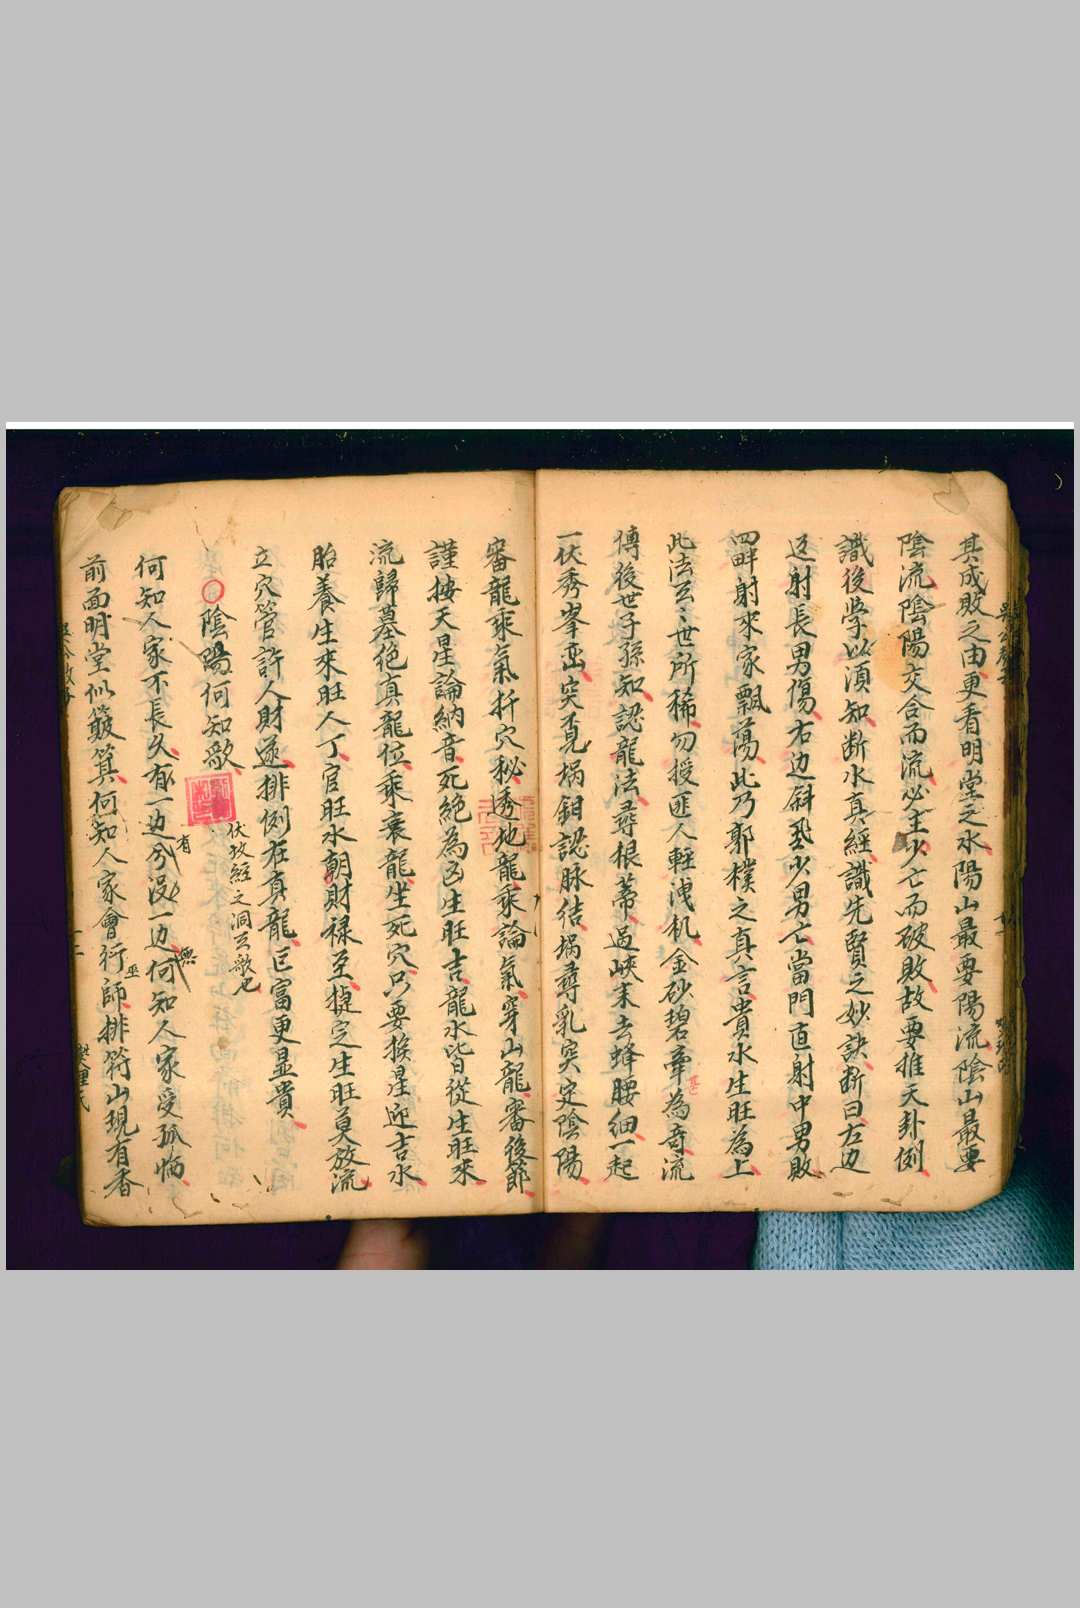 其成敗之由更看明堂之水陽山最要陽流陰山最要
陰流陰陽交合而流必主少亡而破敗故要推天卦例
識後学以須知断水真經識先賢之妙訣断曰左边
反射長男傷右边斜飛少男亡當門直射中男敗
四畔射來家飄蕩此乃郭樸之真言貴水生旺為上
此法云云世所稀勿授匪人輕洩机金砂碧牽為奇流
傳後世子孫知認龍法尋根蒂過峽来去蜂腰細一起
一伏秀峯峦突覓堝鉗認脉結堝尋乳突定陰陽
審龍乘氣折穴秘透地龍乘論氣穿山龍審後節
謹按天星論納音死絕為凶生旺吉龍水皆從生旺來
流歸墓絕真龍位乘衰龍坐死穴只要挨星迎吉水
胎養生來旺人丁官旺水朝財禄至㨗定生旺莫放流
立穴管許人財遂排例在真龍巨富更显貴
○陰陽何知歌
伏玫經之洞玄歌也
何知人家不長久有一边兮没一边何知人家受孤恓
有
無
前面明堂似簸箕何知人家會行師排符山現有香
巫